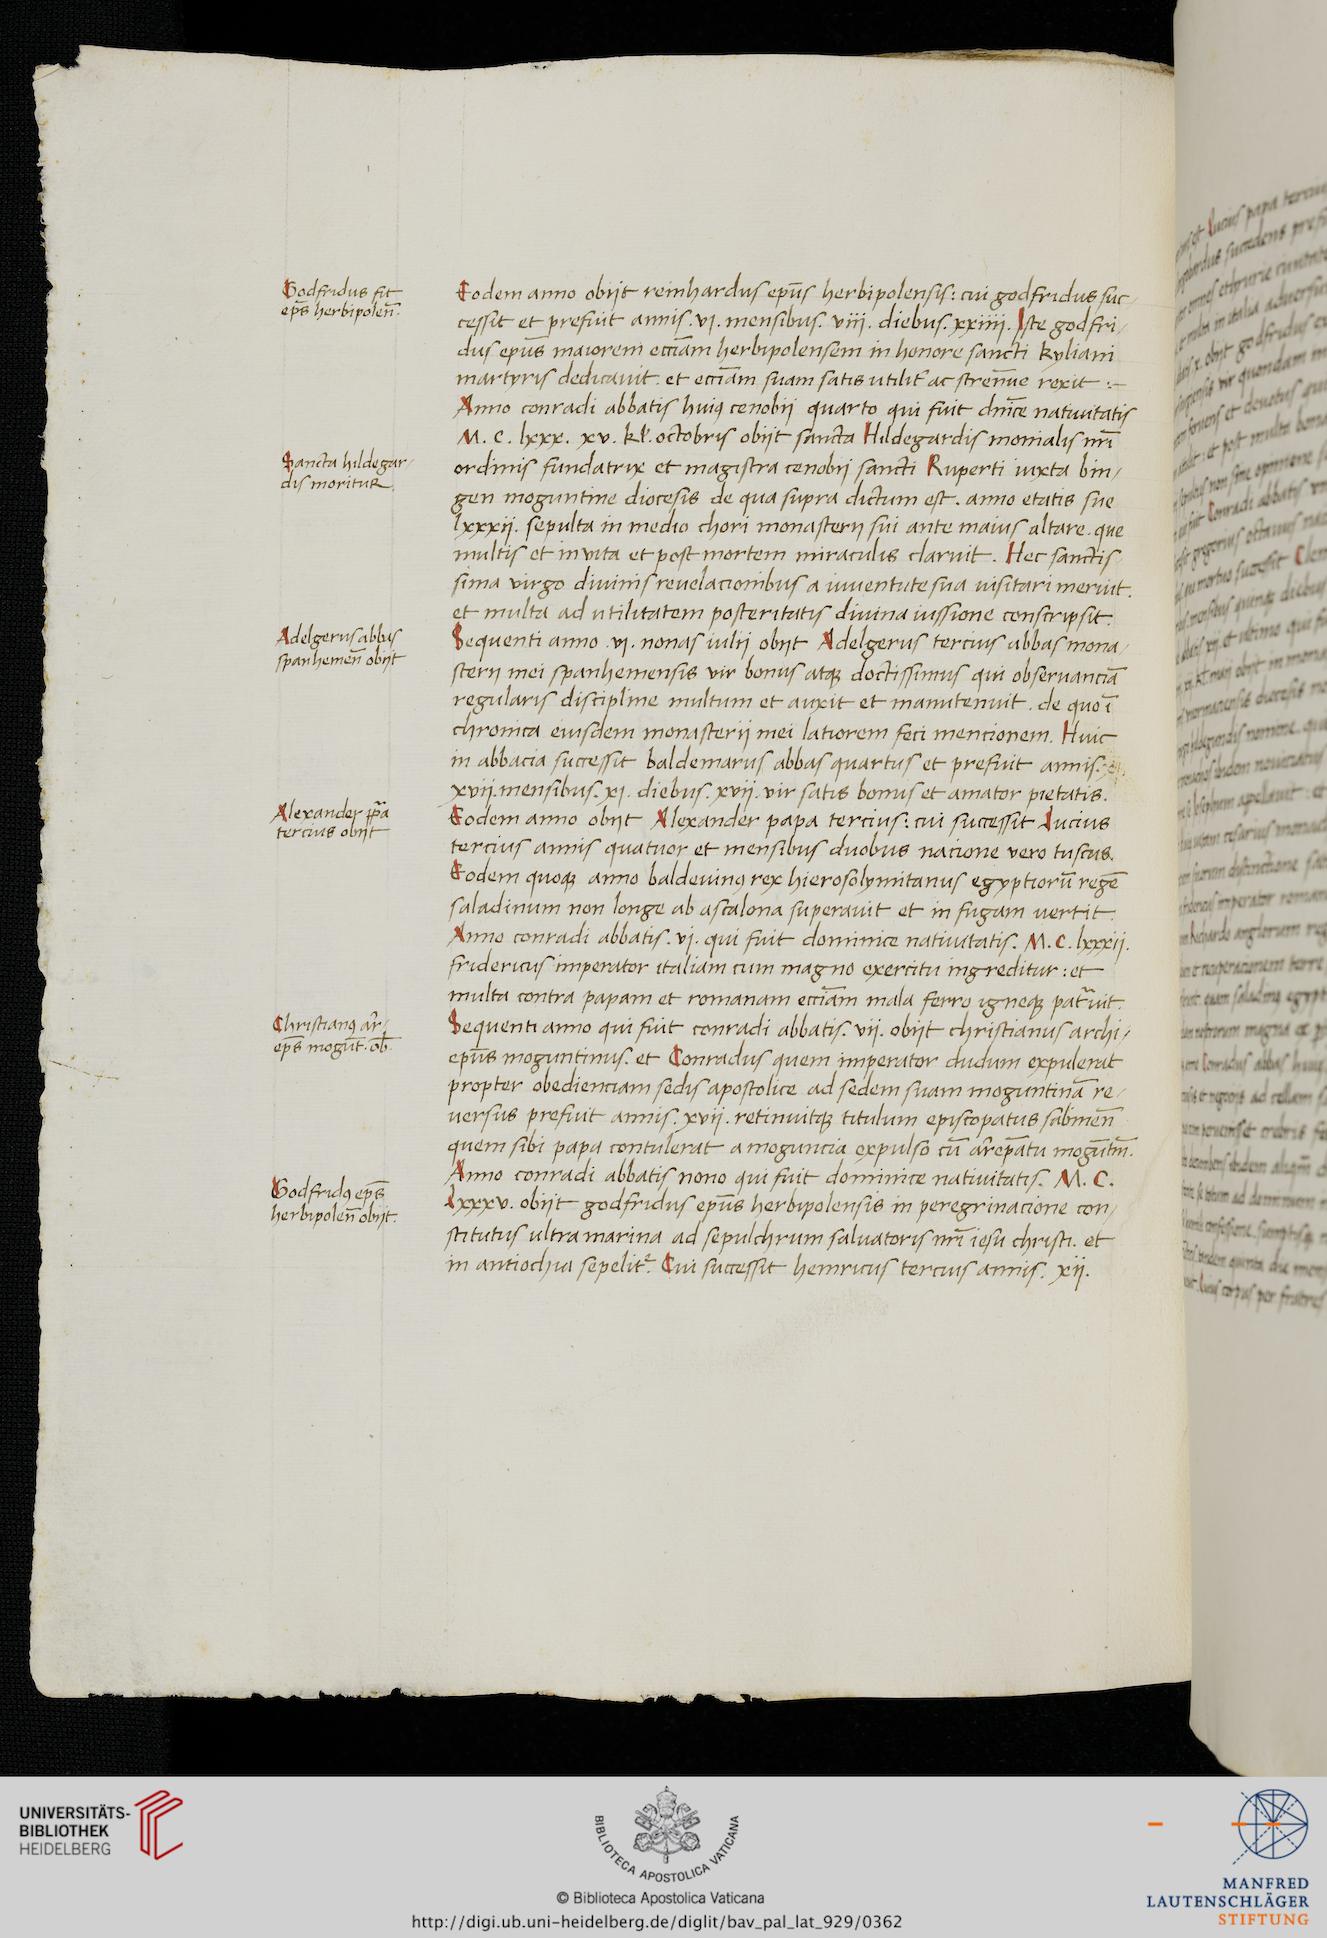 Godfridus fit
ep̄s herbipoleñ.
Eodem anno obijt reinhardus ep̄us herbipolensis: cui godfridus suc-
cessit et prefuit annis. vi. mensibus. viii. diebus. xxiiii. Iste godfri-
dus ep̄us maiorem ecciām herbipolensem in honore sancti kyliani
martyris dedicauit. et ecciām suam satis utilit̄ ac strenn̄ue rexit :-
Anno conradi abbatis huiꝰ cenobij quarto qui fuit dnīce natiuitatis
M. C. lxxx. xv. kl̄. octobris obijt sancta Hildegardis monialis nr̄i
Sancta hildegar-
dis moritur
ordinis fundatrix et magistra cenobij sancti Ruperti iuxta bin-
gen moguntine diocesis de qua supra dictum est. anno etatis sue
lxxxij. sepulta in medio chori monasterij sui ante maius altare. que
multis et in vita et post mortem miraculis claruit. Hec sanctis-
sima virgo diuinis reuelacionibus a iuuentute sua uisitari meruit.
et multa ad utilitatem posteritatis diuina iussione conscripsit.
Adelgerus abbas
spanhemeñ obijt
Sequenti anno vi. nonas iulij obijt Adelgerus tercius abbas mona-
sterij mei spanhemensis vir bonus atqꝫ doctissimus qui obseruanciā
regularis discipline multum et auxit et manutenuit. de quo ī
chronica eiusdem monasterij mei latiorem feci mencionem. Huic
in abbacia successit baldemarus abbas quartus et prefuit annis.
xvij. mensibus. xj. diebus. xvij. vir satis bonus et amator pietatis.
Alexander pp̄a
tercius obijt
Eodem anno obijt Alexander papa tercius: cui successit Lucius
tercius annis quatuor et mensibus duobus nacione vero tuscus.
Eodem quoqꝫ anno baldeuinꝰ rex hierosolymitanus egyptiorū regē
saladinum non longe ab ascalona superauit et in fugam uertit.
Anno conradi abbatis. vj. qui fuit dominice natiuitatis. M. C. lxxxij.
fridericus imperator italiam cum magno exercitu ingreditur: et
multa contra papam et romanam ecciām mala ferro igneqꝫ pat̄uit.
Christianꝰ ar̄-
ep̄s mogūt. ob̄.
Sequenti anno qui fuit conradi abbatis. vij. obijt christianus archi-
ep̄us moguntinus. et Conradus quem imperator dudum expulerat
propter obedienciam sedis apostolice ad sedem suam moguntinā re-
uersus prefuit annis. xvij. retinuitqꝫ titulum episcopatus sabineñ
quem sibi papa contulerat a moguncia expulso cū ar̄ep̄atu mogūtm̄.
Anno conradi abbatis nono qui fuit dominice natiuitatis. M. C.
Godfridꝰ ep̄s
herbipoleñ obijt.
lxxxv. obijt godfridus ep̄us herbipolensis in peregrinacione con-
stitutus ultra marina ad sepulchrum saluatoris nr̄i iesu christi. et
in antiochia sepelit². Cui successit henricus tercius annis. xij.
UNIVERSITÄTS-
BIBLIOTHEK
HEIDELBERG
BIBLIOTECA APOSTOLICA VATICANA
© Biblioteca Apostolica Vaticana
http://digi.ub.uni-heidelberg.de/diglit/bav_pal_lat_929/0362
MANFRED
LAUTENSCHLÄGER
STIFTUNG